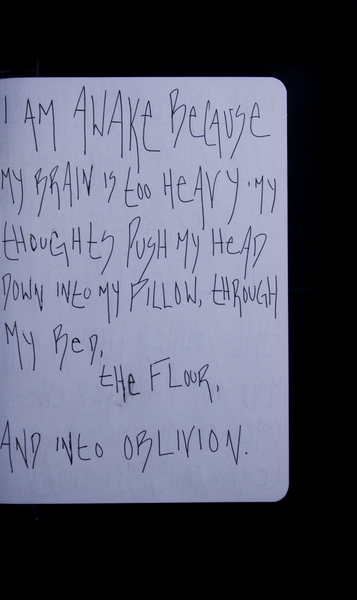 I AM AWAKE BECAUSE
MY BRAIN IS too HEAVY. MY
tHOUGHtS PUSH MY HEAD
DOWN INto MY PILLOW, tHROUGH
MY BED,
tHE FLOOR,
AND INto OBLIVION.